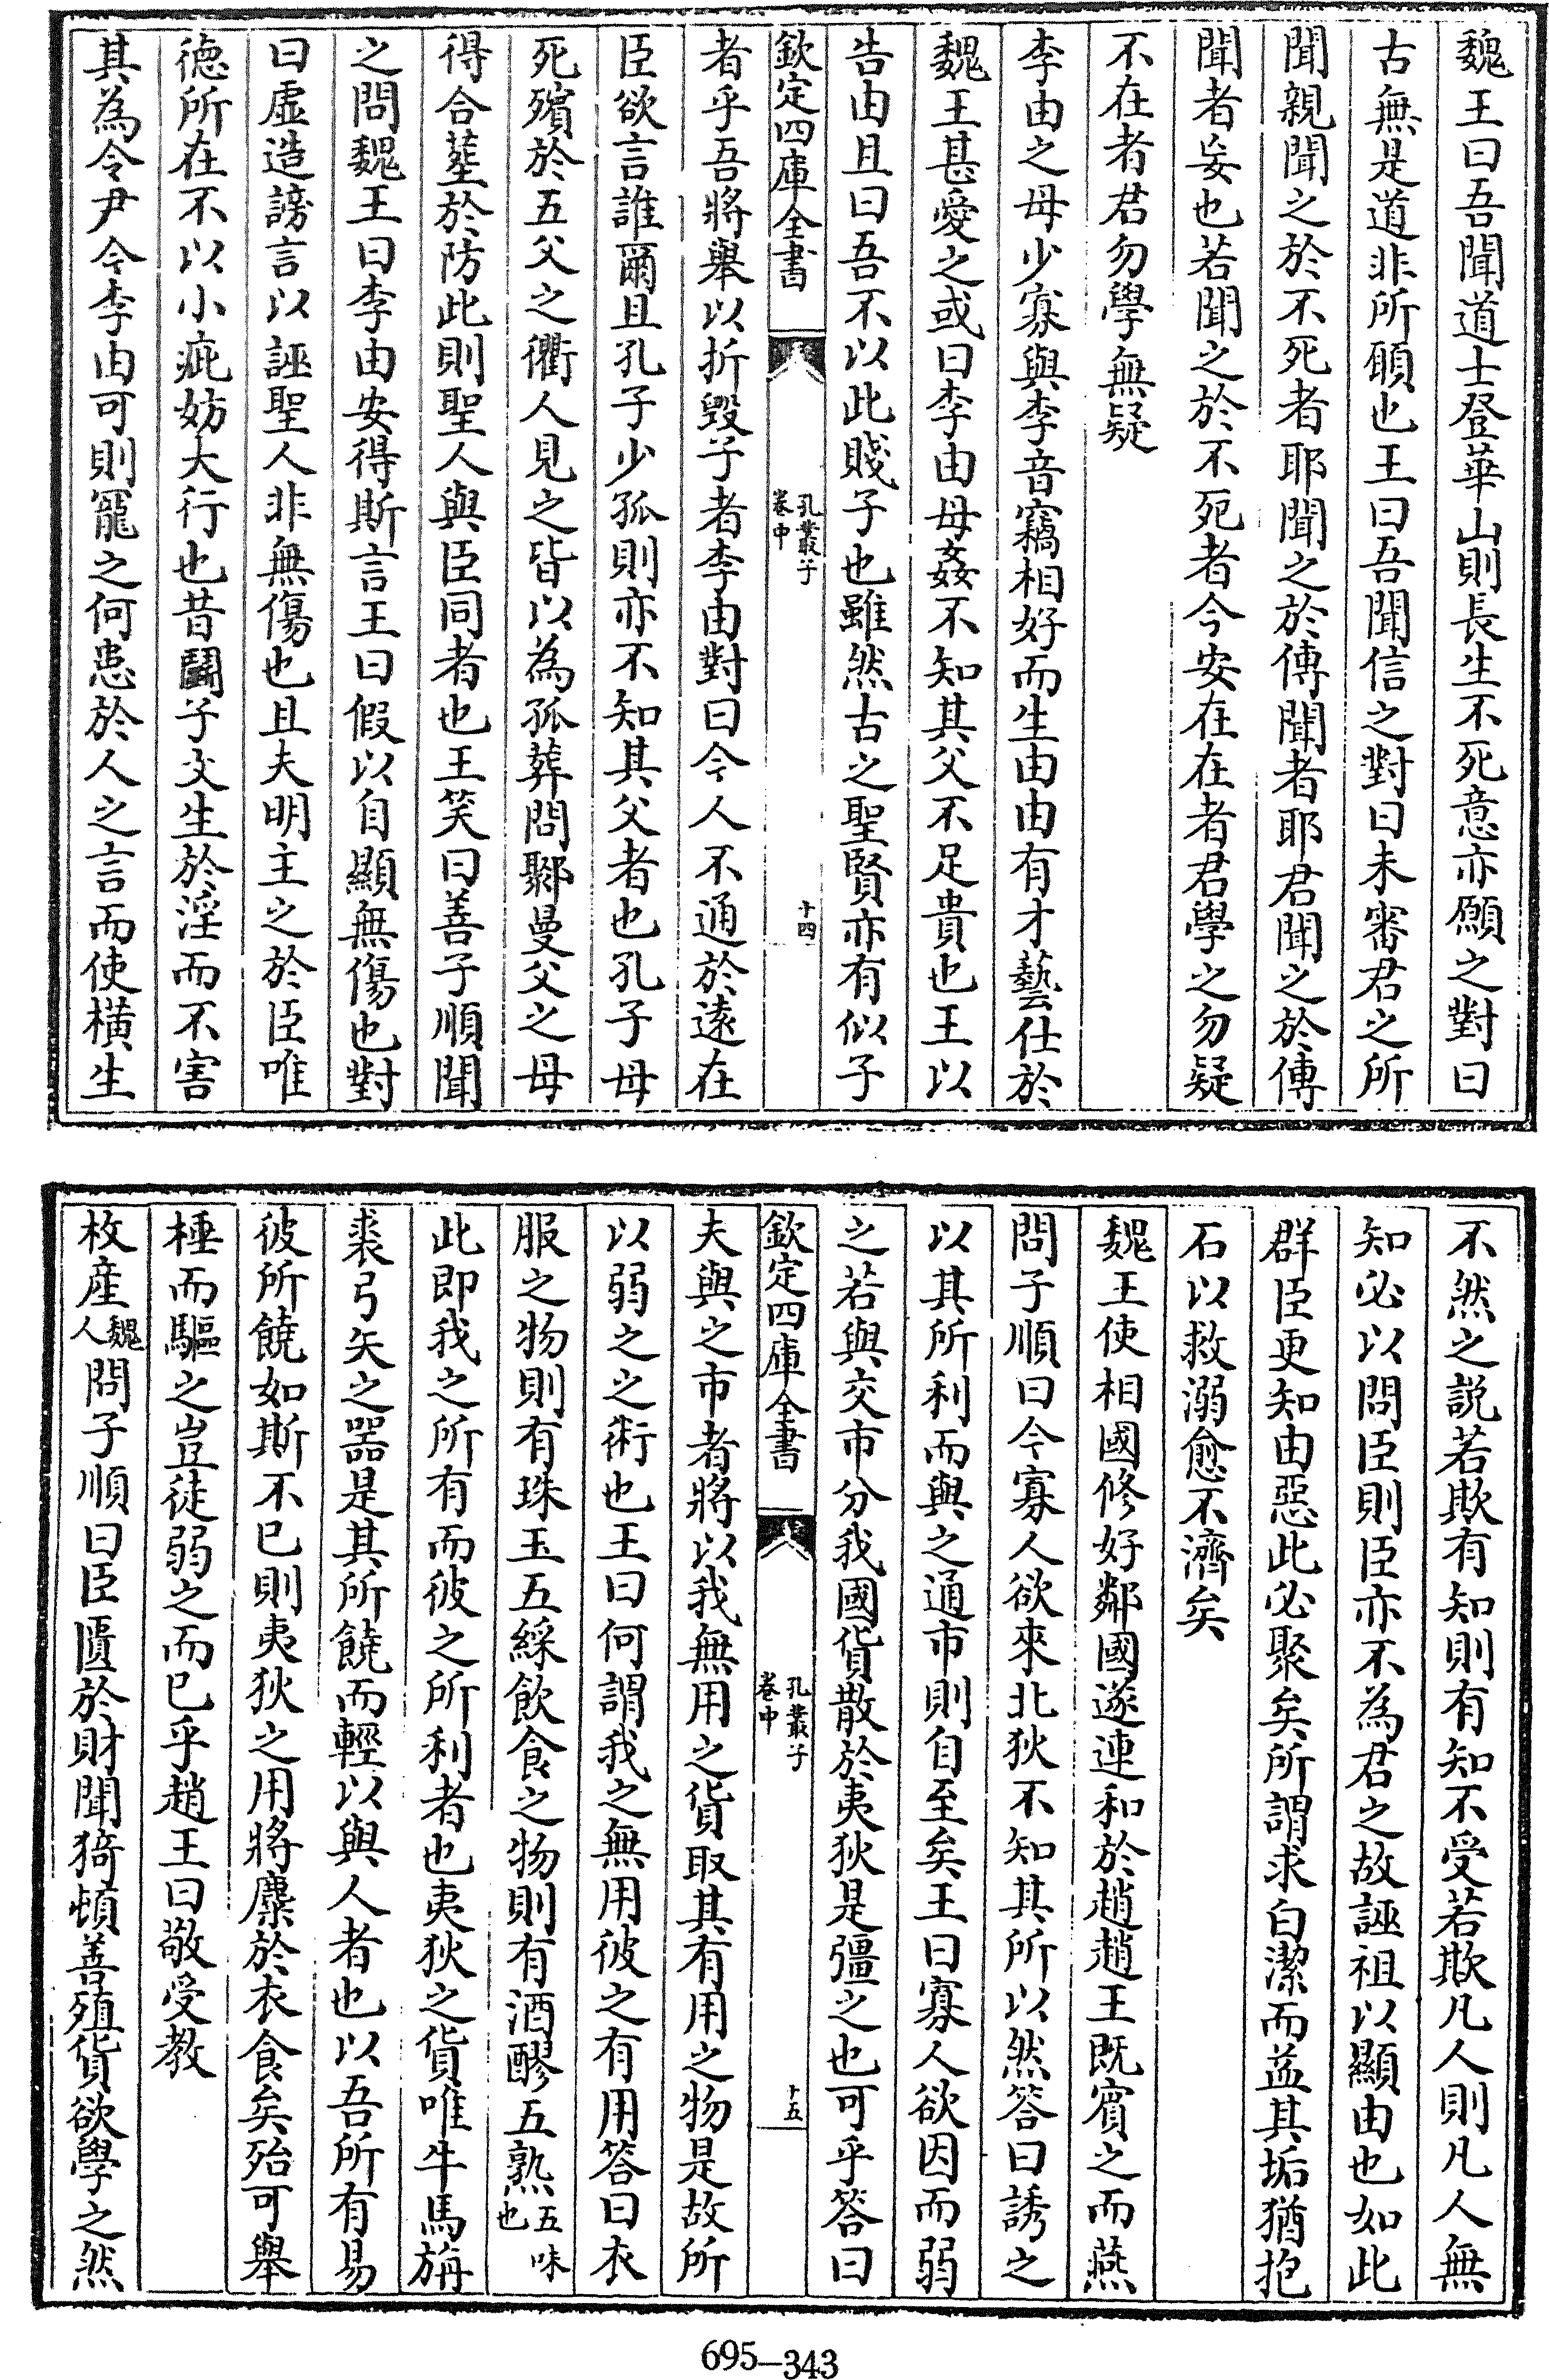 魏王曰吾聞道士登華山則長生不死意亦願之對曰
古無是道非所願也王曰吾聞信之對曰未審君之所
聞親聞之於不死者耶聞之於傳聞者耶君聞之於傳
聞者妄也若聞之於不死者今安在在者君學之勿疑
不在者君勿學無疑
李由之母少寡與李音竊相好而生由由有才藝仕於
魏王甚愛之或曰李由母姦不知其父不足貴也王以
告由且曰吾不以此賤子也雖然古之聖賢亦有似子
欽定四庫全書 孔叢子 卷中 十四
者乎吾將舉以折毀子者李由對曰今人不通於遠在
臣欲言誰爾且孔子少孤則亦不知其父者也孔子母
死殯於五父之衢人見之皆以為孤葬問鄹曼父之母
得合塟於防此則聖人與臣同者也王笑曰善子順聞
之問魏王曰李由安得斯言王曰假以自顯無傷也對
曰虛造謗言以誣聖人非無傷也且夫明主之於臣唯
徳所在不以小疵妨大行也昔鬭子文生於淫而不害
其為令尹今李由可則寵之何患於人之言而使橫生
不然之説若欺有知則有知不受若欺凡人則凡人無
知必以問臣則臣亦不為君之故誣祖以顯由也如此
群臣更知由惡此必聚矣所謂求白潔而益其垢猶抱
石以救溺愈不濟矣
魏王使相國修好鄰國遂連和於趙趙王既賔之而燕
問子順曰今寡人欲來北狄不知其所以然答曰誘之
以其所利而與之通市則自至矣王曰寡人欲因而弱
之若與交市分我國貨散於夷狄是彊之也可乎答曰
欽定四庫全書 孔叢子 卷中 十五
夫與之市者將以我無用之貨取其有用之物是故所
以弱之之術也王曰何謂我之無用彼之有用答曰衣
服之物則有珠玉五綵飲食之物則有酒醪五熟五味也
此即我之所有而彼之所利者也夷狄之貨唯牛馬旃
裘弓矢之器是其所饒而輕以與人者也以吾所有易
彼所饒如斯不已則夷狄之用將麋於衣食矣殆可舉
棰而驅之豈徒弱之而已乎趙王曰敬受教
枚産魏人問子順曰臣匱於財聞猗頓善殖貨欲學之然
695-343